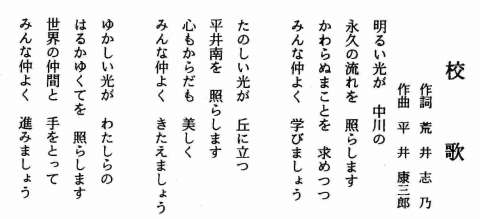 校歌
作詞 荒井志乃
作曲 平井康三郎
明るい光が 中川の
永久の流れを 照らします
かわらぬまことを 求めつつ
みんな仲よく 学びましょう
たのしい光が 丘に立つ
平井南を 照らします
心もからだも 美しく
みんな仲よく きたえましょう
ゆかしい光が わたしらの
はるかゆくてを 照らします
世界の仲間と 手をとって
みんな仲よく 進みましょう